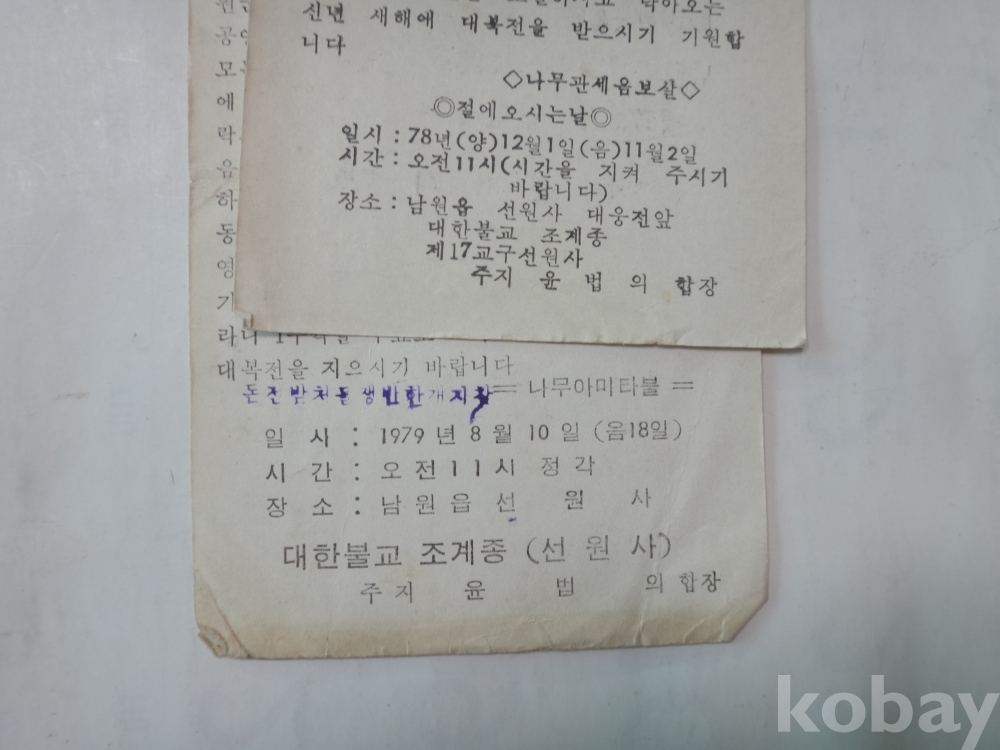 신년 새해에 대복전을 받으시기 기원합
니다
◇나무관세음보살◇
◎절에오시는날◎
일시 : 78년(양)12월1일(음)11월2일
시간 : 오전11시(시간을 지켜 주시기
바랍니다)
장소 : 남원읍 선원사 대웅전앞
대한불교 조계종
제17교구선원사
주지 윤 법 의 합장
공
모
에
락
음
하
동
영
기
라니
대복전을 지으시기 바랍니다
= 나무아미타불 =
일 시 : 1979 년 8 월 10 일 (음18일)
시 간 : 오 전 11 시 정 각
장 소 : 남 원 읍 선 원 사
대한불교 조계종 (선 원 사)
주 지 윤 법 의 합장
kobay